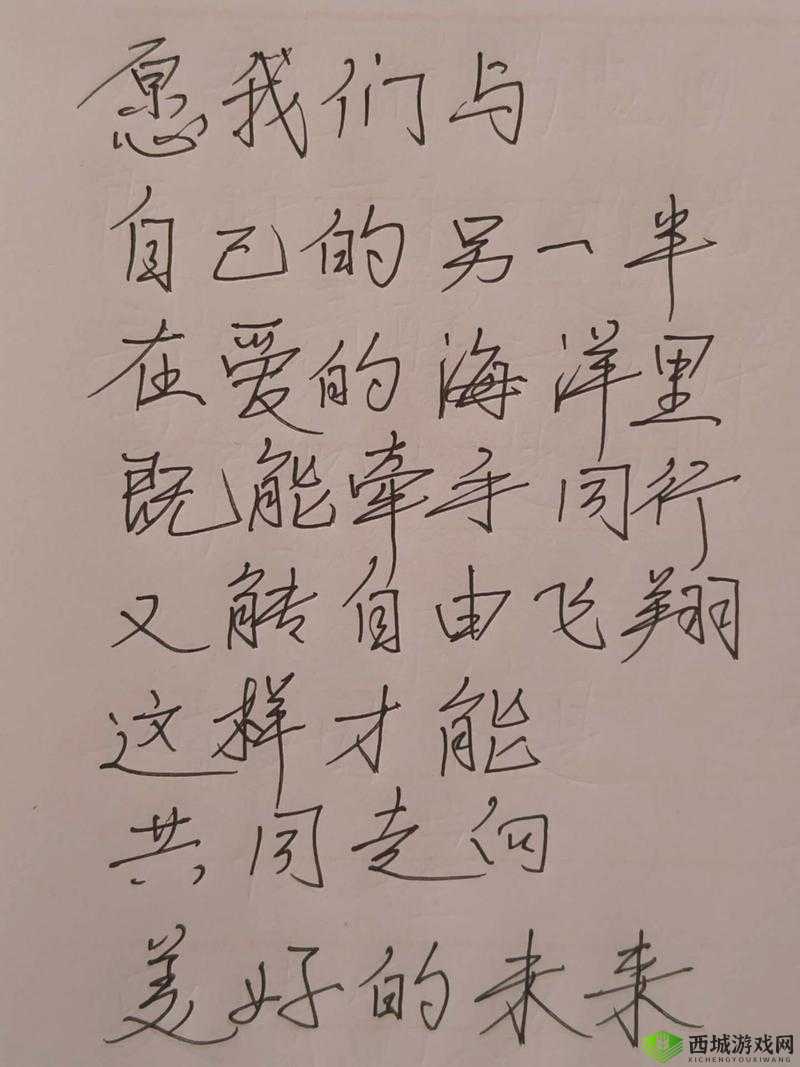 愿我们与
自己的另一半
在爱的海洋里
既能牵手同行
又能自由飞翔
这样才能
共同走向
美好的未来
西城游戏网
XICHENGYOUXIWANG